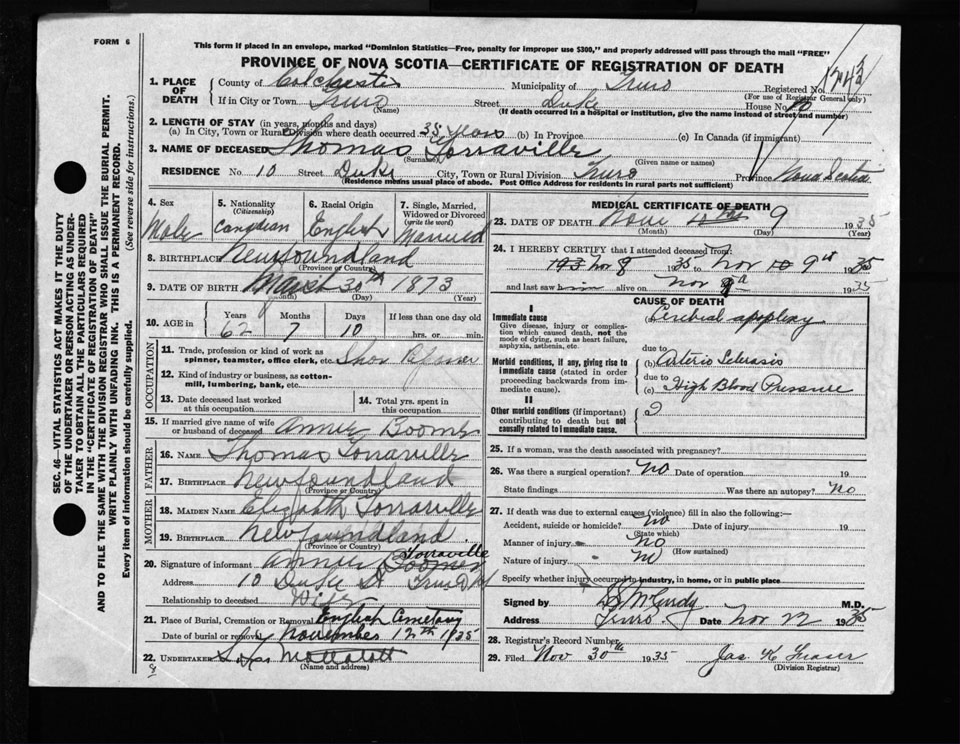 FORM 6
This form if placed in an envelope, marked "Dominion Statistics—Free, penalty for improper use $300," and properly addressed will pass through the mail "FREE"
PROVINCE OF NOVA SCOTIA—CERTIFICATE OF REGISTRATION OF DEATH
1. PLACE OF DEATH County of Colchester Municipality of Truro Registered No.
(For use of Registrar General only)
If in City or Town Truro Street Duke House No. 10
(Name) (If death occurred in a hospital or institution, give the name instead of street and number)
2. LENGTH OF STAY (in years, months and days)
(a) In City, Town or Rural Division where death occurred 35 years (b) In Province (c) In Canada (if immigrant)
3. NAME OF DECEASED Thomas Torraville
(Surname) (Given name or names)
RESIDENCE No. 10 Street Duke City, Town or Rural Division Truro Province Nova Scotia
(Residence means usual place of abode. Post Office Address for residents in rural parts not sufficient)
4. Sex 5. Nationality (Citizenship) 6. Racial Origin 7. Single, Married, Widowed or Divorced (write the word)
Male Canadian English Married
8. BIRTHPLACE Newfoundland
(Province or Country)
9. DATE OF BIRTH March 30th 1873
(Month) (Day) (Year)
10. AGE in Years Months Days If less than one day old
62 7 10 hrs. or min.
OCCUPATION
11. Trade, profession or kind of work as spinner, teamster, office clerk, etc.
12. Kind of industry or business, as cotton-mill, lumbering, bank, etc.
13. Date deceased last worked at this occupation 14. Total yrs. spent in this occupation
15. If married give name of wife or husband of deceased Annie Boomer
FATHER
16. NAME Thomas Torraville
17. BIRTHPLACE Newfoundland
(Province or Country)
MOTHER
18. MAIDEN NAME Elizabeth Torraville
19. BIRTHPLACE Newfoundland
(Province or Country)
20. Signature of informant Annie Boomer Torraville
Address 10 Duke St Truro
Relationship to deceased Wife
21. Place of Burial, Cremation or Removal English Cemetary
Date of burial or removal November 12th 1935
22. UNDERTAKER
(Name and address)
MEDICAL CERTIFICATE OF DEATH
23. DATE OF DEATH Nov 9 1935
(Month) (Day) (Year)
24. I HEREBY CERTIFY that I attended deceased from:
193 Nov 8 1935 to Nov 10 9th 1935
and last saw him alive on Nov 9th 1935
CAUSE OF DEATH
I
Immediate cause
Give disease, injury or complication which caused death, not the mode of dying, such as heart failure, asphyxia, asthenia, etc.
(a) Cerebral apoplexy
due to
Morbid conditions, if any, giving rise to immediate cause (stated in order proceeding backwards from immediate cause).
(b) Arterio Sclerosis
due to
(c) High Blood Pressure
II
Other morbid conditions (if important) contributing to death but not causally related to immediate cause.
25. If a woman, was the death associated with pregnancy?
26. Was there a surgical operation? No Date of operation 19
State findings Was there an autopsy? No
27. If death was due to external causes (violence) fill in also the following:—
Accident, suicide or homicide? No Date of injury 19
(State which)
Manner of injury No
(How sustained)
Nature of injury No
Specify whether injury occurred in industry, in home, or in public place
Signed by M.D.
Address Truro Date Nov 22 1935
28. Registrar's Record Number
29. Filed Nov 30th 1935 Jas. K Fraser
(Division Registrar)
SEC. 46—VITAL STATISTICS ACT MAKES IT THE DUTY
OF THE UNDERTAKER OR PERSON ACTING AS UNDER-
TAKER TO OBTAIN ALL THE PARTICULARS REQUIRED
IN THE "CERTIFICATE OF REGISTRATION OF DEATH"
AND TO FILE THE SAME WITH THE DIVISION REGISTRAR WHO SHALL ISSUE THE BURIAL PERMIT.
WRITE PLAINLY WITH UNFADING INK. THIS IS A PERMANENT RECORD.
Every item of information should be carefully supplied. (See reverse side for instructions.)